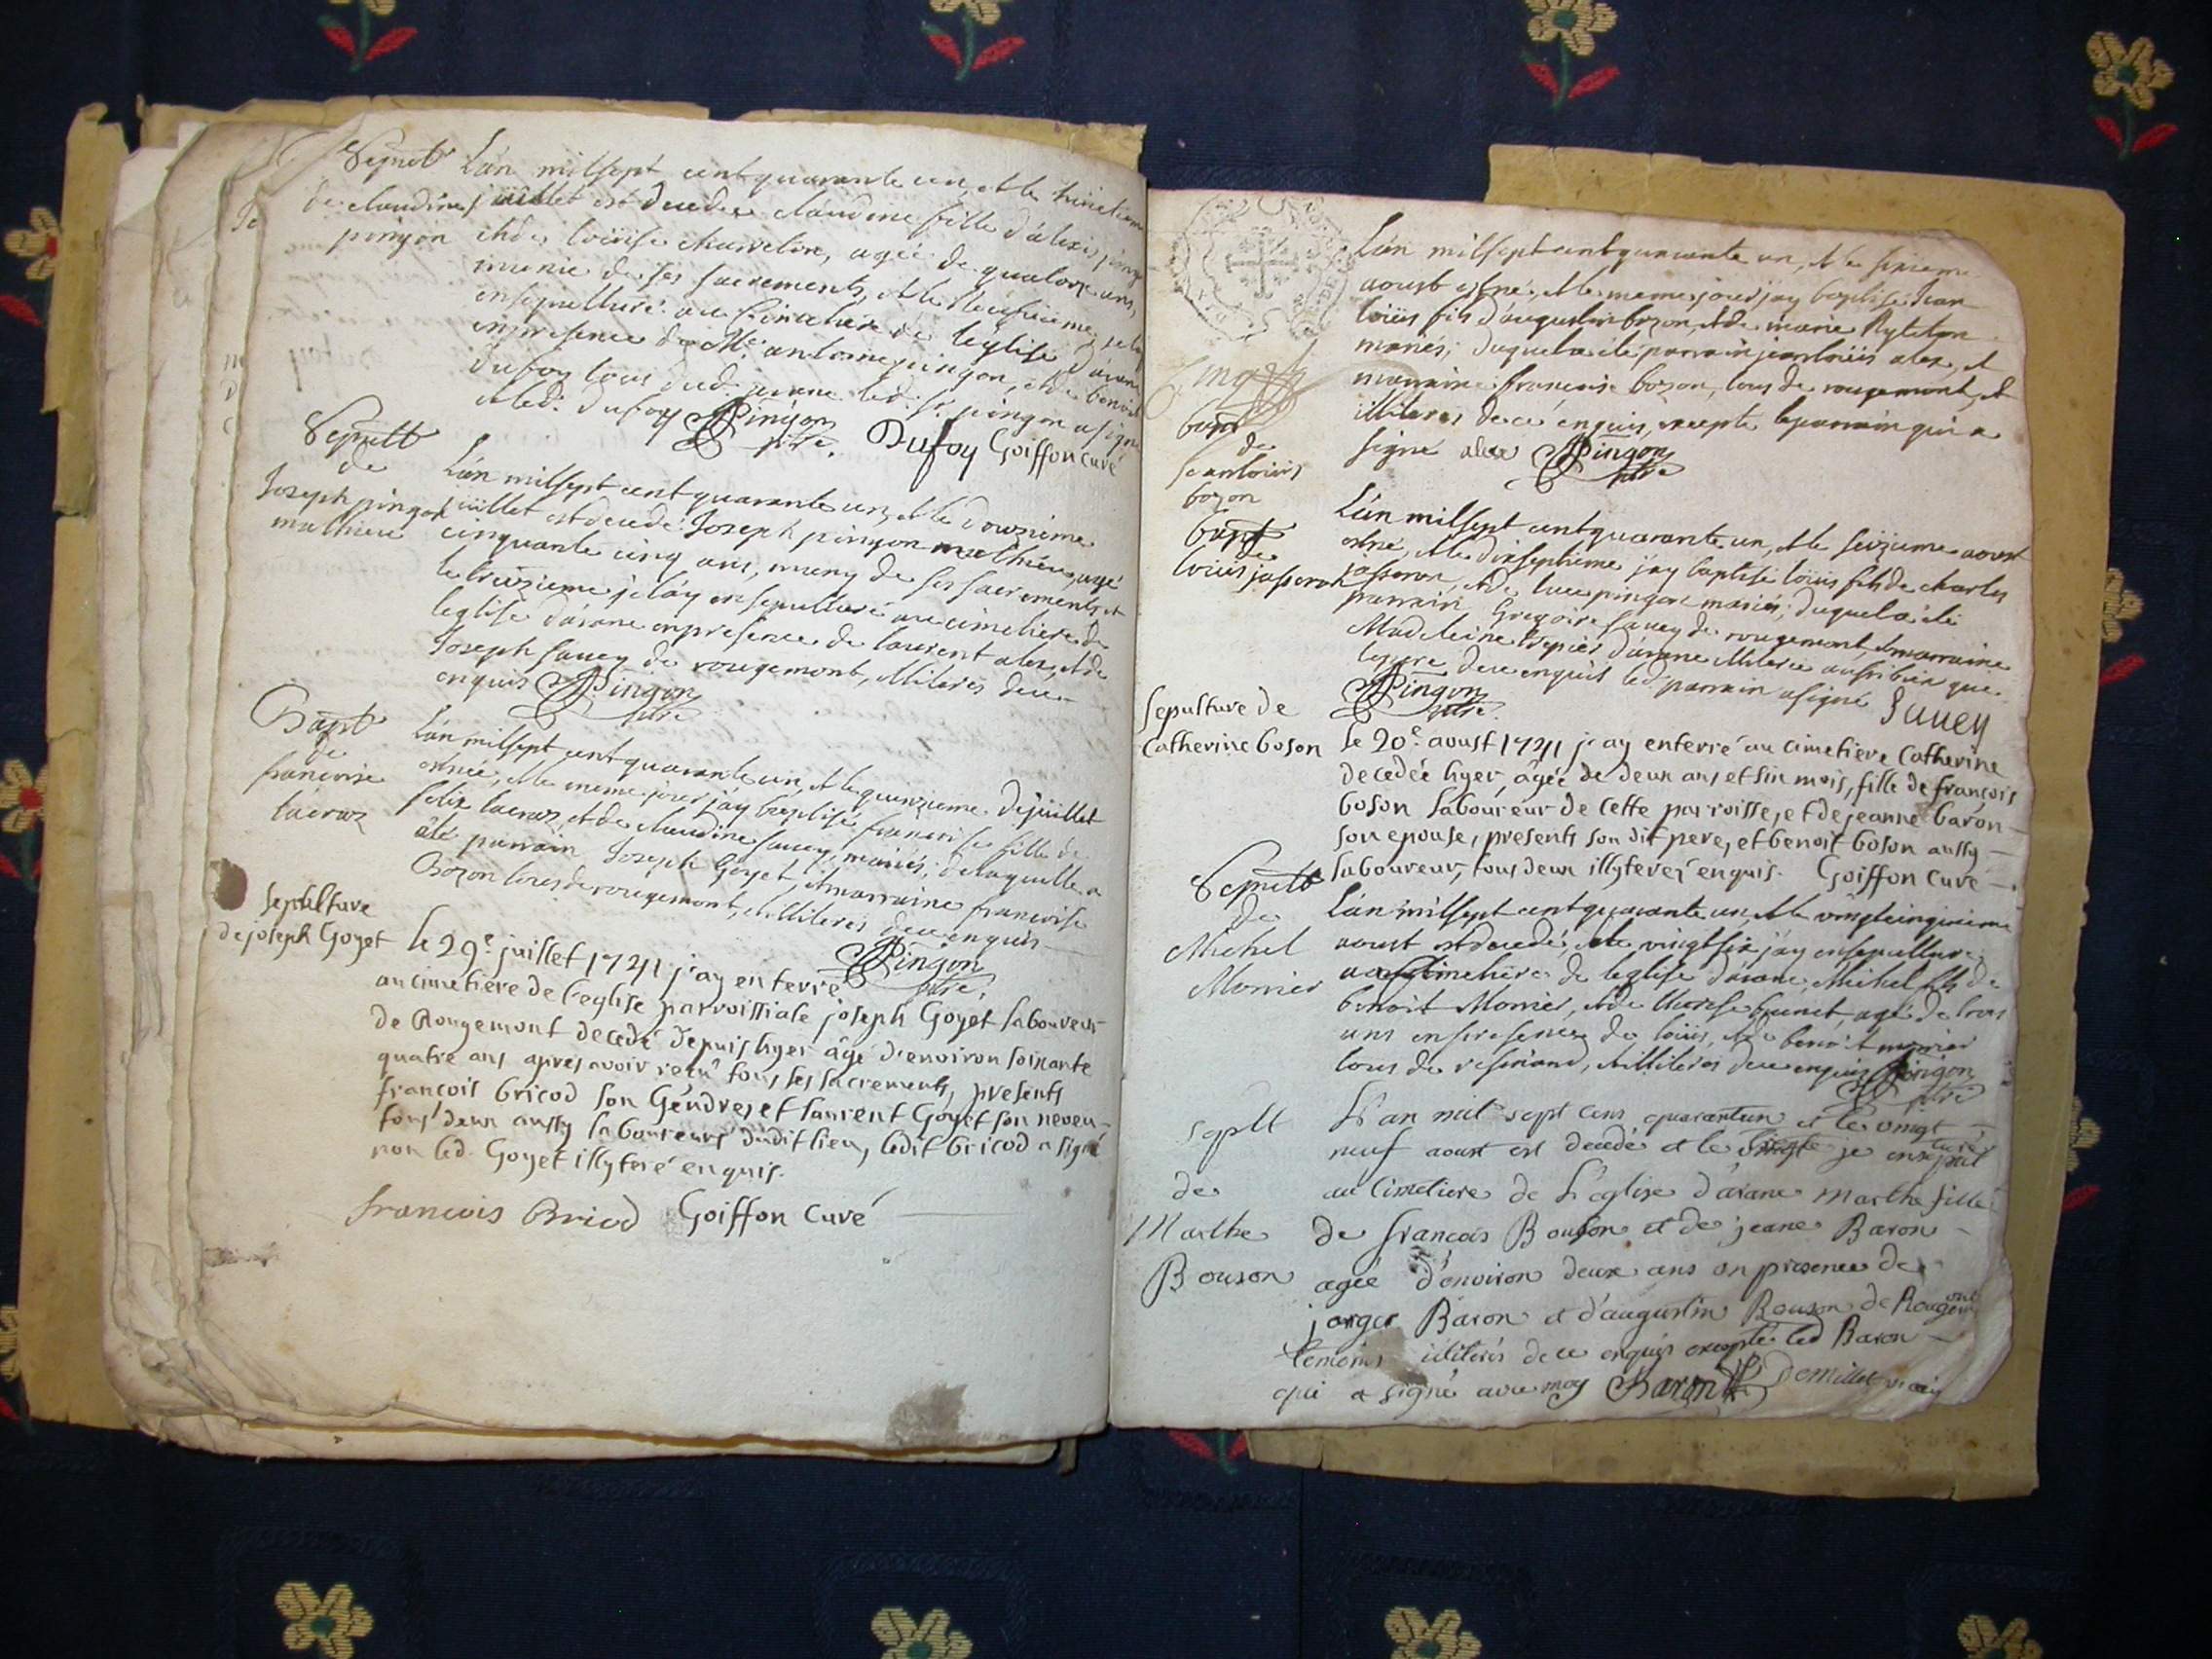 Sepult
de claudine
pingon
L'an milsept cent quarante un, et le huictieme
juillet est decedee claudine fille d'alexis
et de loüise charvelin, agée de quatorze ans,
munie de ses sacrements, et le neufieme
ensepulturé au cimetiere de leglise d'arane
en presence de Mr. antoine pingon, et de benoit
Dufoy tous dud. arane led. Sr. pingon a signé
et led. dufoy Pingon ptre. Dufoy Goiffon curé
Sepult
de
Joseph pingon
mathieu
L'an milsept cent quarante un, et le douzieme
juillet est decedé Joseph pingon mathieu, agé
cinquante cinq ans, muny de ses sacrements, et
le treizieme je l'ay ensepulturé au cimetiere de
leglise d'arane en presence de laurent alex, et de
Joseph savey de rougemont, illiterés de ce
enquis Pingon
ptre
Bapt
de
francoise
lacraz
L'an milsept cent quarante un, et le quinzieme de juillet
est née, et le meme jour j'ay baptisé francoise fille de
felix lacraz, et de claudine savey mariés; de laquelle a
été parrain Joseph Goyet, et marraine francoise
Bozon tous de rougemont, et illiterés de ce enquis
Pingon
ptre.
sepulture
de joseph Goyet
le 29e. juillet 1741 j'ay enterré
au cimetiere de l'eglise parroissiale joseph Goyet laboureur
de Rougemont decedé depuis hyer âgé d'environ soixante
quatre ans apres avoir recu tous ses sacrements, presents
francois bricod son Gendre, et laurent Goyet son neveu
tous deux aussy laboureurs dudit lieu, ledit bricod a signé
non led. Goyet illyteré enquis.
francois Bricod Goiffon Curé
bapt
de
Jeanloüis
bozon
L'an milsept cent quarante un, et le
aoust est né, et le meme jour j'ay baptisé Jean
loüis fils d'augustin bozon, et de marie
mariés; duquel a été parrain jean loüis alex, et
marraine francoise bozon, tous de rougemont, et
illiteres de ce enquis, excepté le parrain qui a
signé alex Pingon
ptre
bapt
de
loüis jasseron
L'an milsept cent quarante un, et le seizieme aoust
est né, et le dixseptieme j'ay baptisé loüis fils de charles
jasseron, et de luce pingon mariés; duquel a été
parrain Gregoire savey de rougemont, et marraine
Madeleine d'arane illiterée aussi bien que
le pere de ce enquis led. parrain a signé Savey
Pingon
ptre.
Sepulture de
Catherine boson
le 20e. aoust 1741 j'ay enterré au cimetiere Catherine
decedée hyer, âgée de deux ans et six mois, fille de francois
boson laboureur de cette parroisse, et de jeanne baron
son epouse, presents son dit pere, et benoit boson aussy
laboureur, tous deux illyterés enquis. Goiffon Curé
Sepult
de
Michel
Monier
L'an milsept cent quarante un et le vingtcinquieme
aoust est decedé, et le vingtsix j'ay ensepulturé
au cimetiere de leglise d'arane, Michel fils de
benoit Monier, et de therese brunet, agé de trois
ans en presence de loüis, et de benoit monier
tous de resinand, et illiterés de ce enquis Pingon
ptre
sepult
de
Marthe
Bouson
L'an mil sept cens quarantun et le vingt
neuf aoust est decedé et le je ensepulturé
au Cimetiere de L'eglise d'arane marthe fille
de francois Bouson et de jeane Baron
agée d'environ deux ans en presence de
jorge Baron et d'augustin Bouson de Rougemont
temoins illiterés de ce enquis excepté led Baron
qui a signé avec moy Baron Demillet vicaire